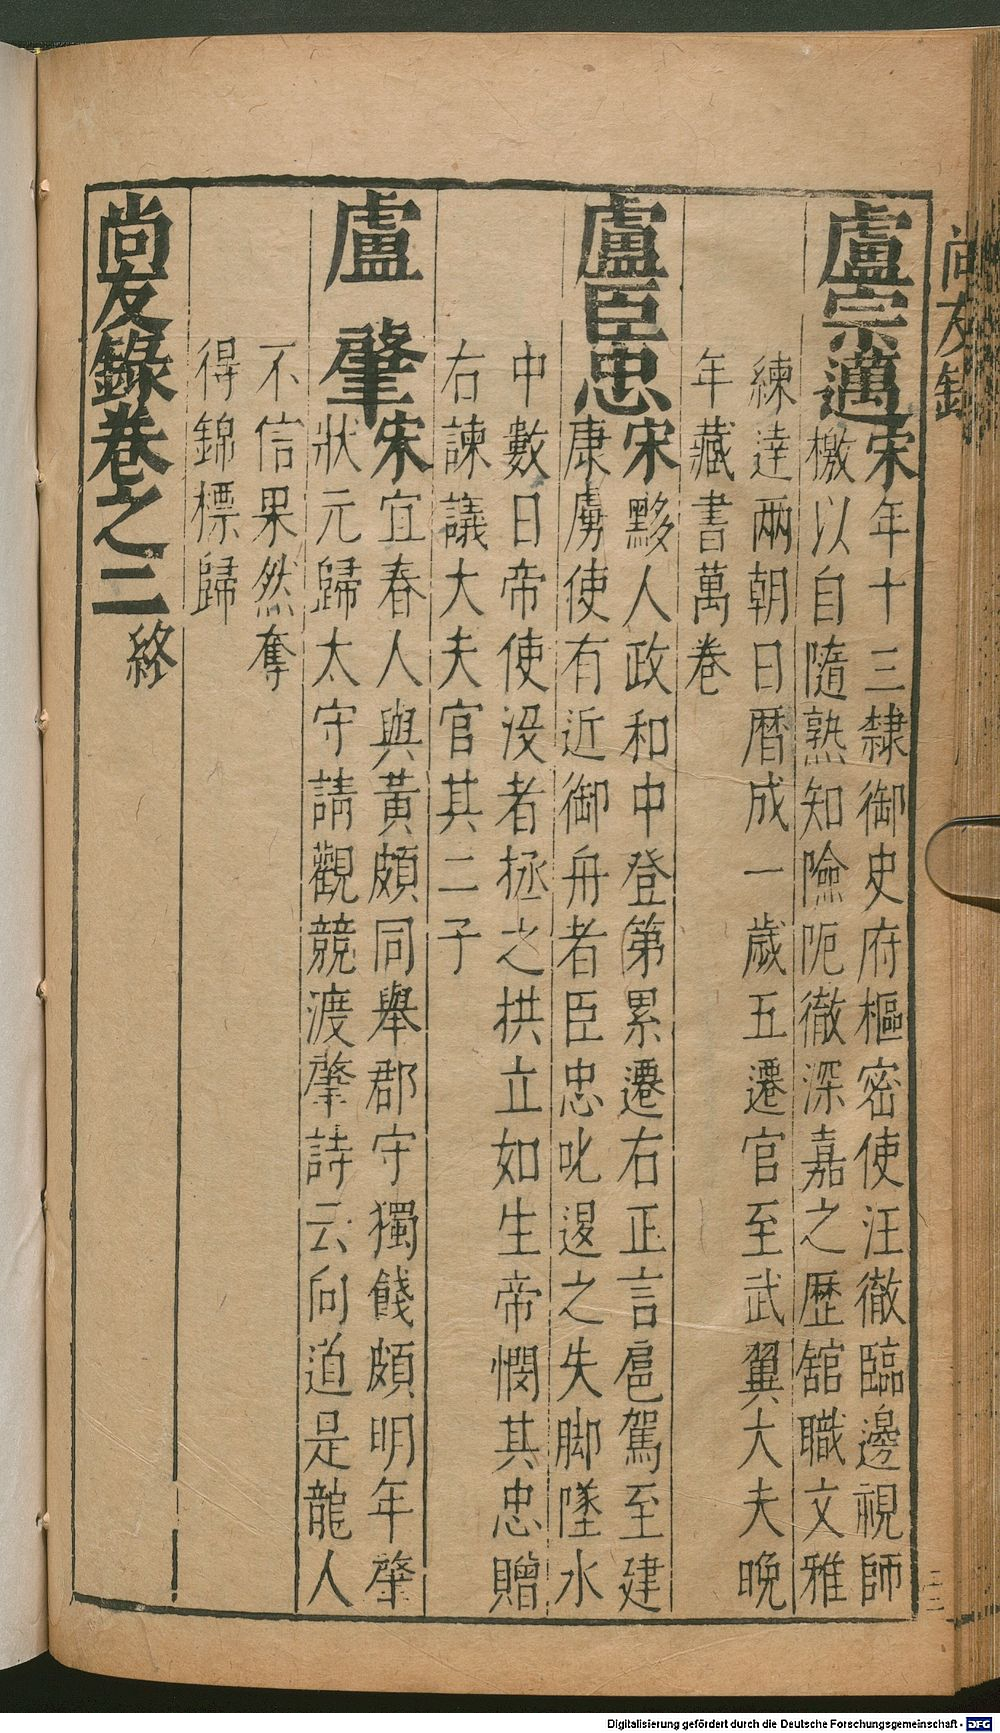 盧宗邁宋年十三隸御史府樞密使汪徹臨邊視師
檄以自隨熟知險阨徹深嘉之歴舘職文雅
練達兩朝日暦成一歲五遷官至武翼大夫晚
年藏書萬卷
盧臣忠宋黟人政和中登第累遷右正言扈駕至建
康虜使有近御舟者臣忠叱退之失脚墜水
中數日帝使没者拯之拱立如生帝憫其忠贈
右諫議大夫官其二子
盧肇宋宜春人與黃頗同舉郡守獨餞頗明年肇
狀元歸太守請觀競渡肇詩云向道是龍人
不信果然奪
得錦標歸
尚友錄卷之二終
尚友錄
Digitalisierung gefördert durch die Deutsche Forschungsgemeinschaft - DFG